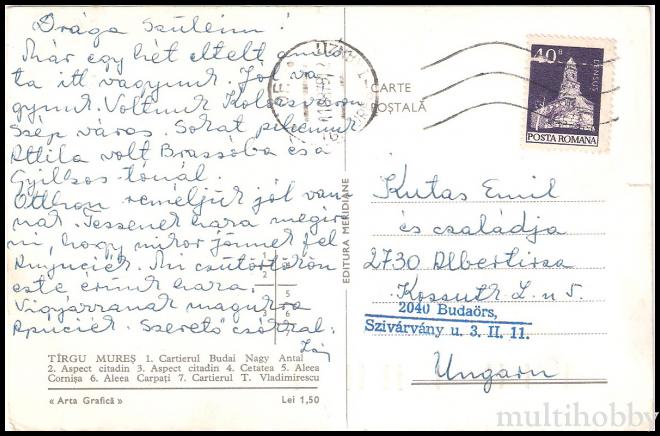 Drága Szüleim!
Már egy hét eltelt amió
ta itt vagyunk. Jól va
gyunk. Voltunk Kolozsváron
szép város. Sokat pihenünk
Attila volt Brassóba és a
Gyilkos tónál.
Otthon reméljük jól van
nak. Tessenek haza megír
ni, hogy mikor jönnek fel
Anyuciék. Mi csütörtökön
este érünk haza.
Vigyázzanak magukra
Apuciék. Szerető csókkal:
TÎRGU MUREȘ 1. Cartierul Budai Nagy Antal
2. Aspect citadin 3. Aspect citadin 4. Cetatea 5. Aleea
Cornișa 6. Aleea Carpați 7. Cartierul T. Vladimirescu
« Arta Grafică » Lei 1,50
EDITURA MERIDIANE
CARTE
POȘTALĂ
40 B
DENSUȘ
POSTA ROMANA
Kutas Emil
és családja
2730 Albertirsa
Kossuth L. u 5.
2040 Budaörs,
Szivárvány u. 3. II. 11.
Ungarn
multihobby